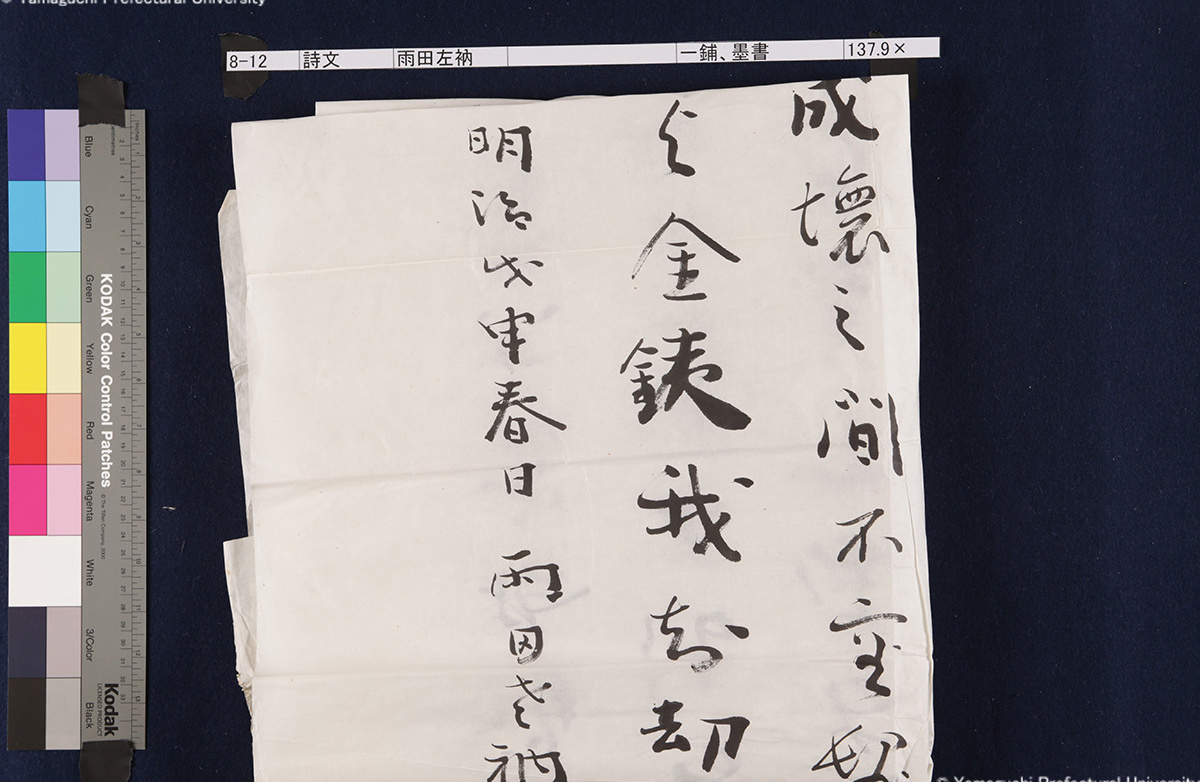 © Yamaguchi Prefectural University
8-12 詩文 雨田左衲 一鋪、墨書 137.9×
成壞之間不
金鎖我劫
明治戊申春日 雨田老衲
Blue
Cyan
Green
Yellow
Red
Magenta
White
3/Color
Black
KODAK Color Control Patches
© The Tiffen Company, 2000
Kodak
LICENSED PRODUCT
centimetres
Inches
© Yamaguchi Prefectural University